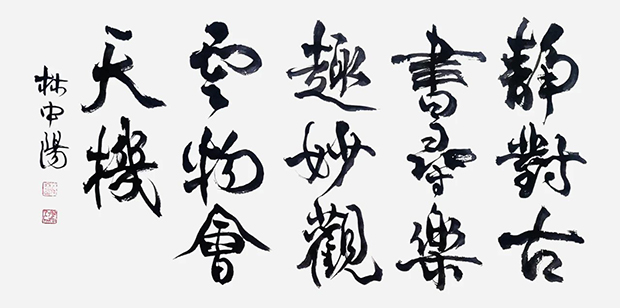 靜對古
書尋樂
趣妙觀
雲物會
天機
林中陽